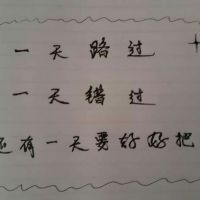 一天路过
一天错过
还有一天要好好把